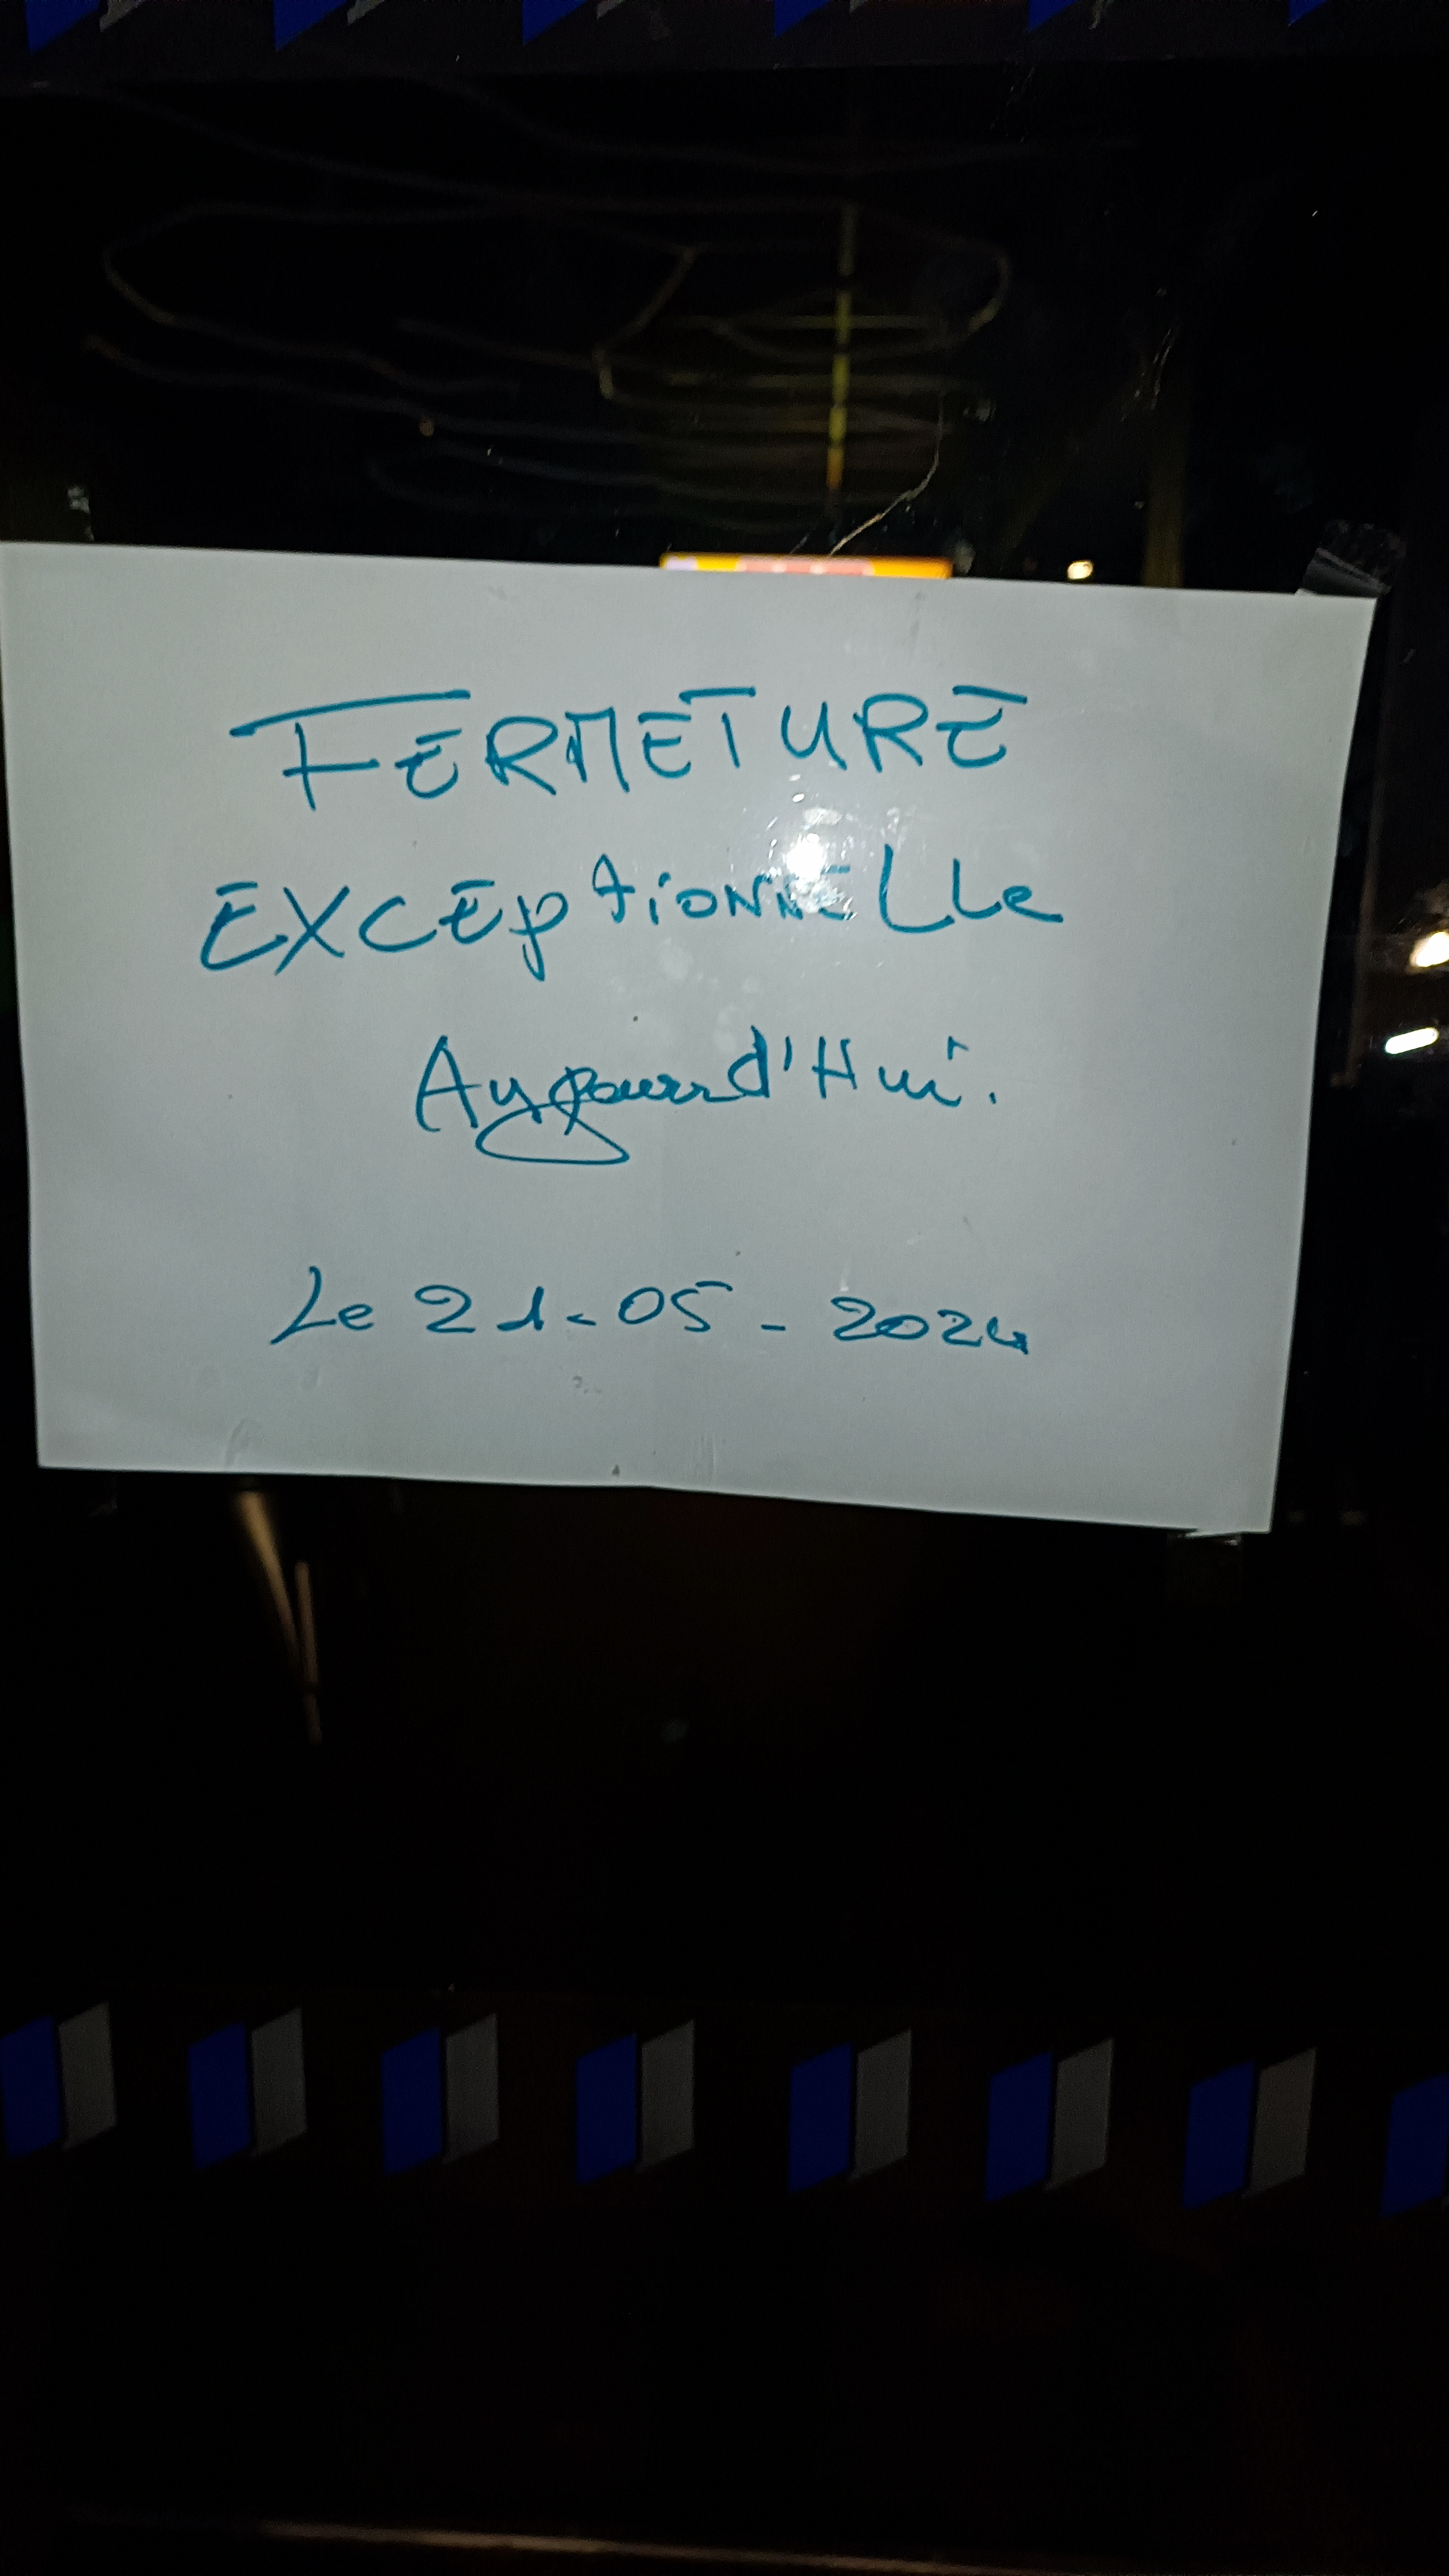 FERMETURE
EXCEptionNELLe
Aujourd'Hui.
Le 21-05-2024